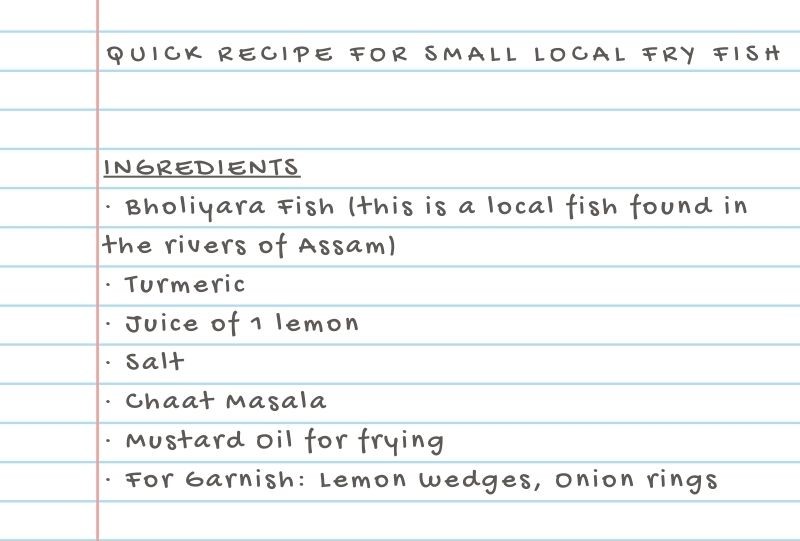 QUICK RECIPE FOR SMALL LOCAL FRY FISH
INGREDIENTS
· Bholiyara Fish (this is a local fish found in
the rivers of Assam)
· Turmeric
· Juice of 1 lemon
· Salt
· Chaat Masala
· Mustard Oil for frying
· For Garnish: Lemon wedges, Onion rings